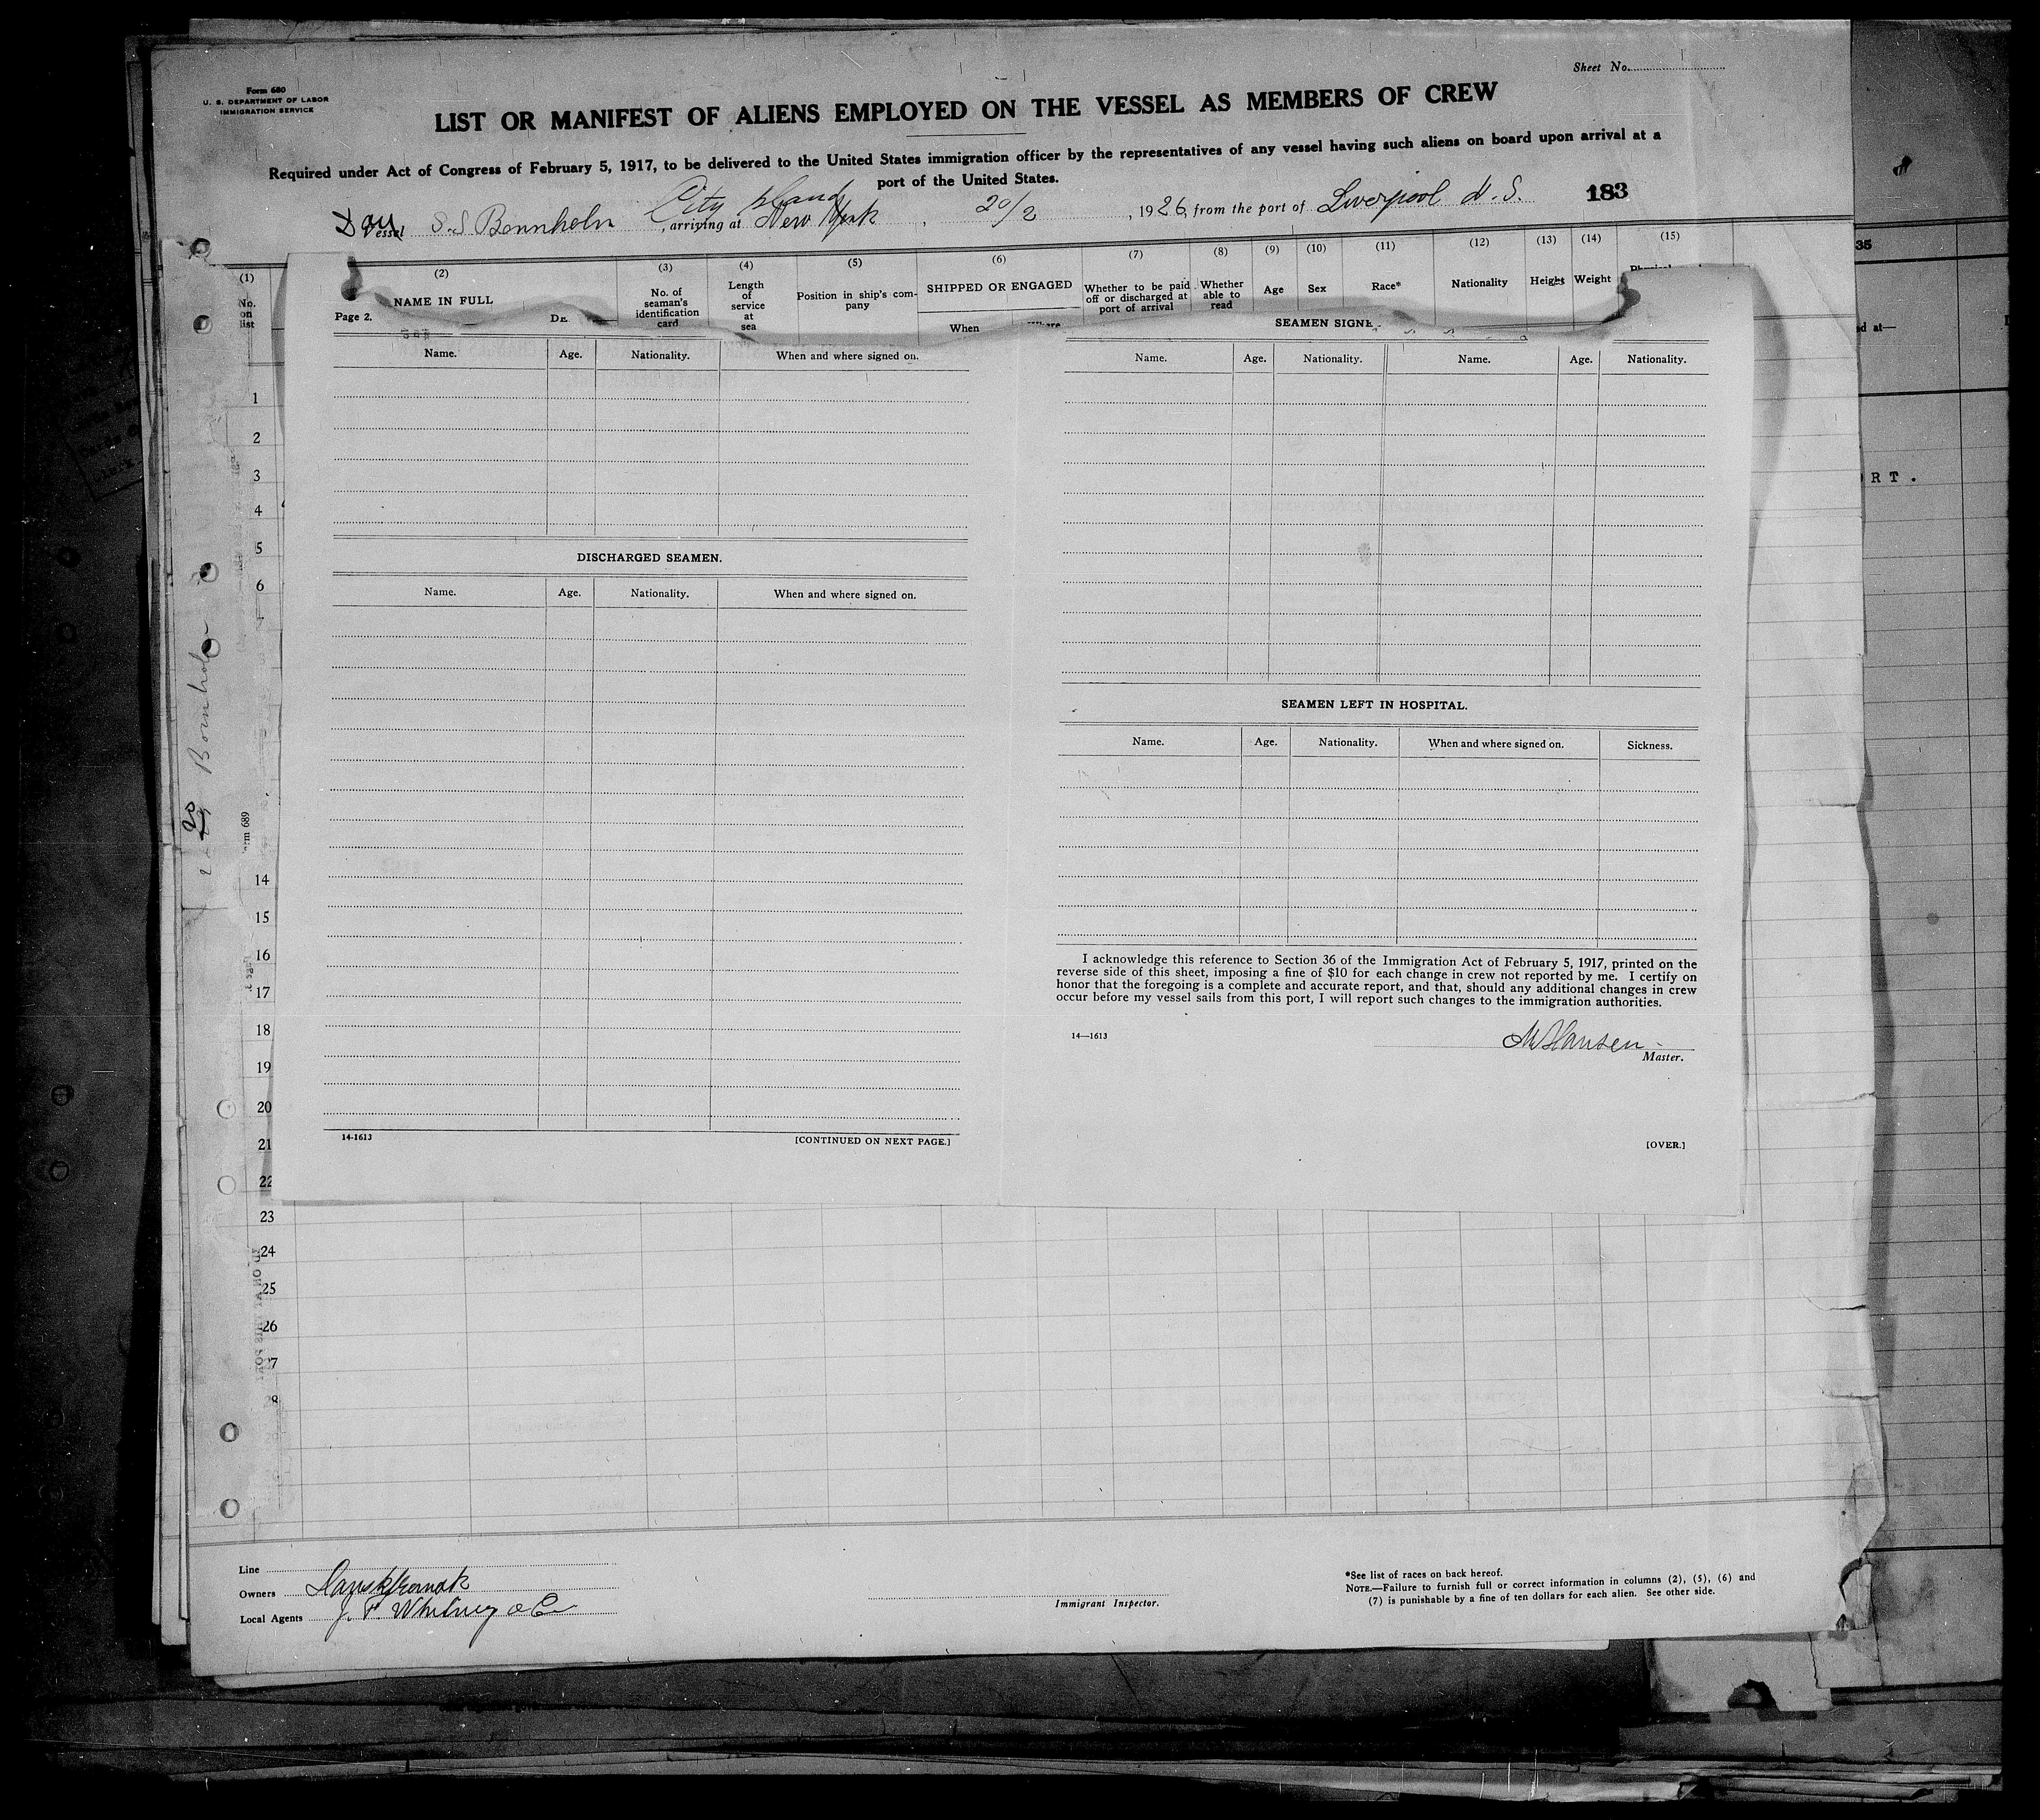 Sheet No.
Form 680
U. S. DEPARTMENT OF LABOR
IMMIGRATION SERVICE
LIST OR MANIFEST OF ALIENS EMPLOYED ON THE VESSEL AS MEMBERS OF CREW
Required under Act of Congress of February 5, 1917, to be delivered to the United States immigration officer by the representatives of any vessel having such aliens on board upon arrival at a
port of the United States.
City Island
Dan Vessel S.S Bornholm, arriving at New York, 20/2, 1926, from the port of Liverpool N.S. 183
(1) (2) (3) (4) (5) (6) (7) (8) (9) (10) (11) (12) (13) (14) (15) 35
No. on list
NAME IN FULL
No. of seaman's identification card
Length of service at sea
Position in ship's company
SHIPPED OR ENGAGED
When
Whether to be paid off or discharged at port of arrival
Whether able to read
Age
Sex
Race*
Nationality
Height
Weight
Page 2.
SEAMEN
Name. Age. Nationality. When and where signed on.
Name. Age. Nationality. Name. Age. Nationality.
RT.
1
2
3
4
5
6
DISCHARGED SEAMEN.
Name. Age. Nationality. When and where signed on.
SEAMEN LEFT IN HOSPITAL.
Name. Age. Nationality. When and where signed on. Sickness.
Bornholm
20
689
14
15
16
17
18
19
20
21
22
23
24
25
26
27
I acknowledge this reference to Section 36 of the Immigration Act of February 5, 1917, printed on the
reverse side of this sheet, imposing a fine of $10 for each change in crew not reported by me. I certify on
honor that the foregoing is a complete and accurate report, and that, should any additional changes in crew
occur before my vessel sails from this port, I will report such changes to the immigration authorities.
14—1613
M Hansen
Master.
14-1613
[CONTINUED ON NEXT PAGE.]
[OVER.]
Line
Owners
Local Agents J. F. Whitney & Co
Immigrant Inspector.
*See list of races on back hereof.
NOTE.—Failure to furnish full or correct information in columns (2), (5), (6) and
(7) is punishable by a fine of ten dollars for each alien. See other side.